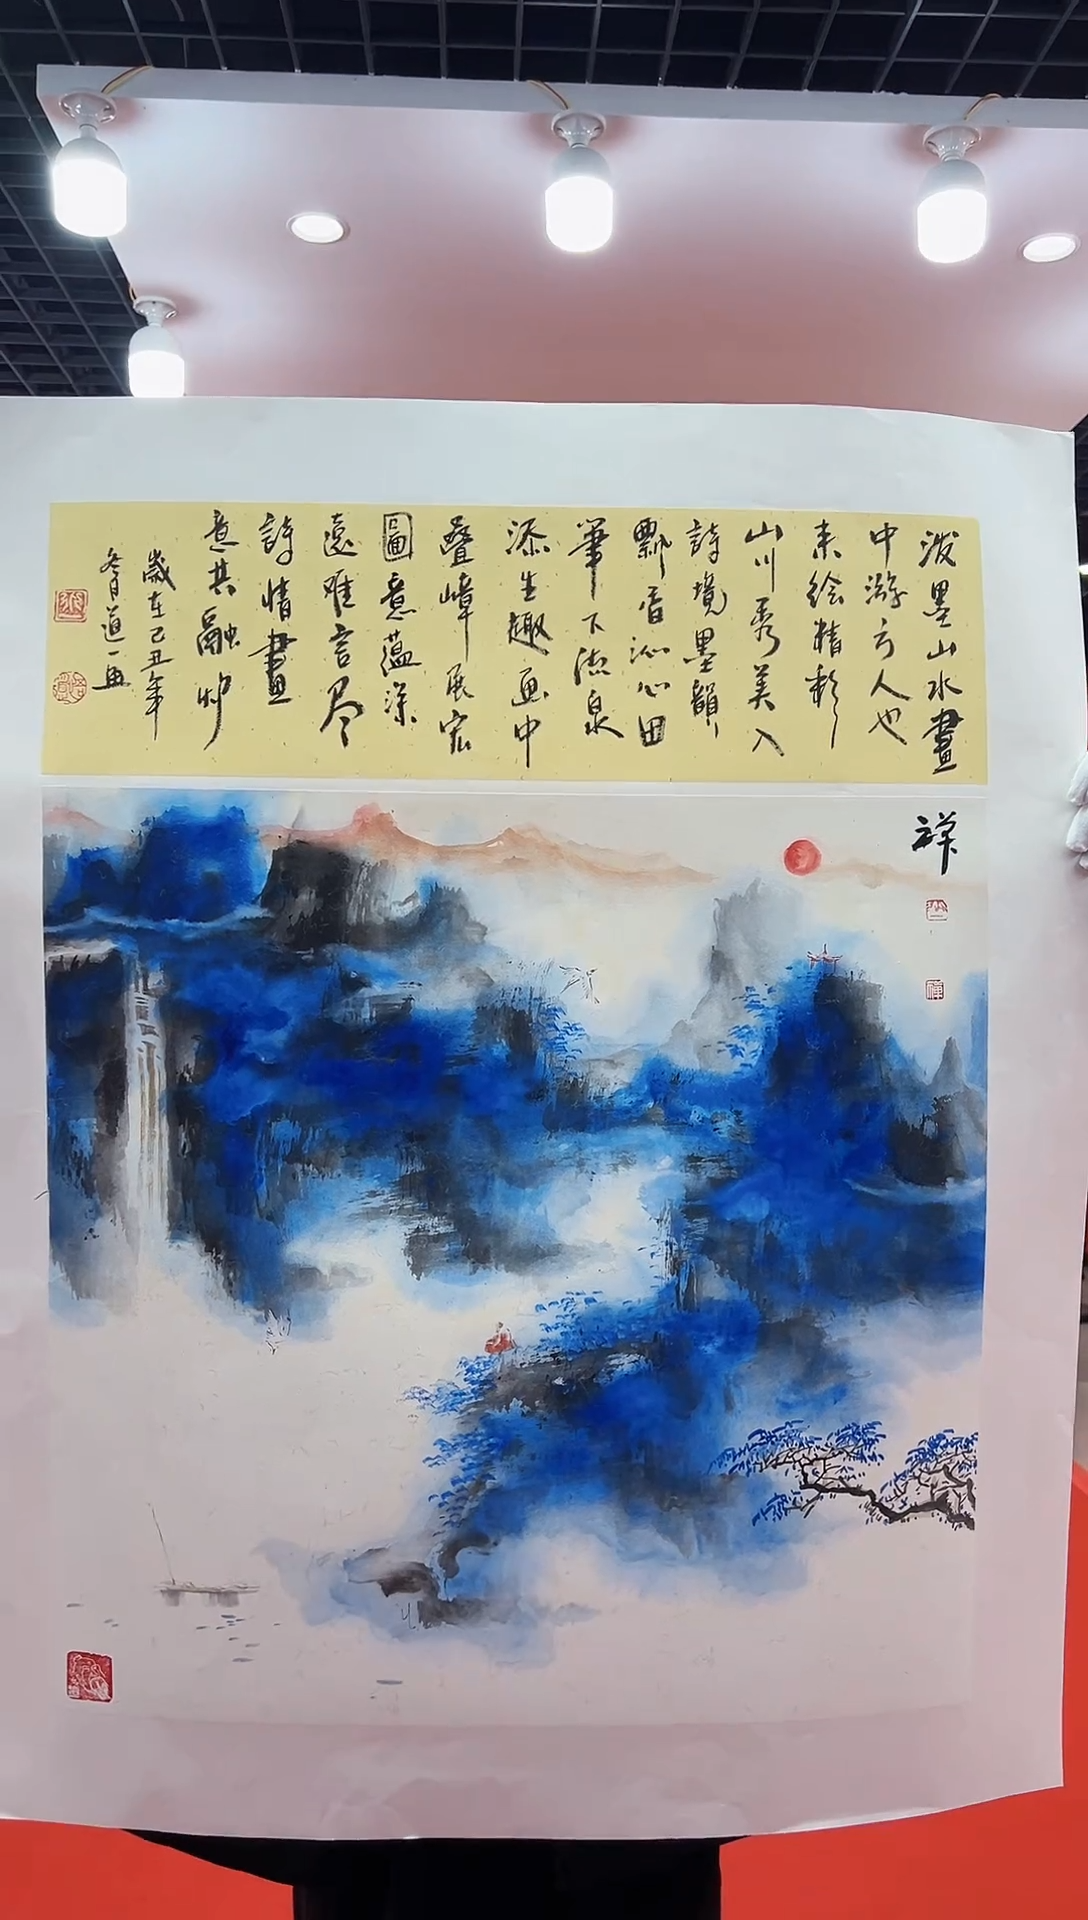 潑墨山水畫
中游方人也
来绘精彩
山川秀美入
詩境墨韻
飘香沁心田
筆下流泉
添生趣画中
疊嶂展宏
圖意蕴深
遠难言尽
詩情畫
意共融
歲在己丑年
冬月道一画
祥